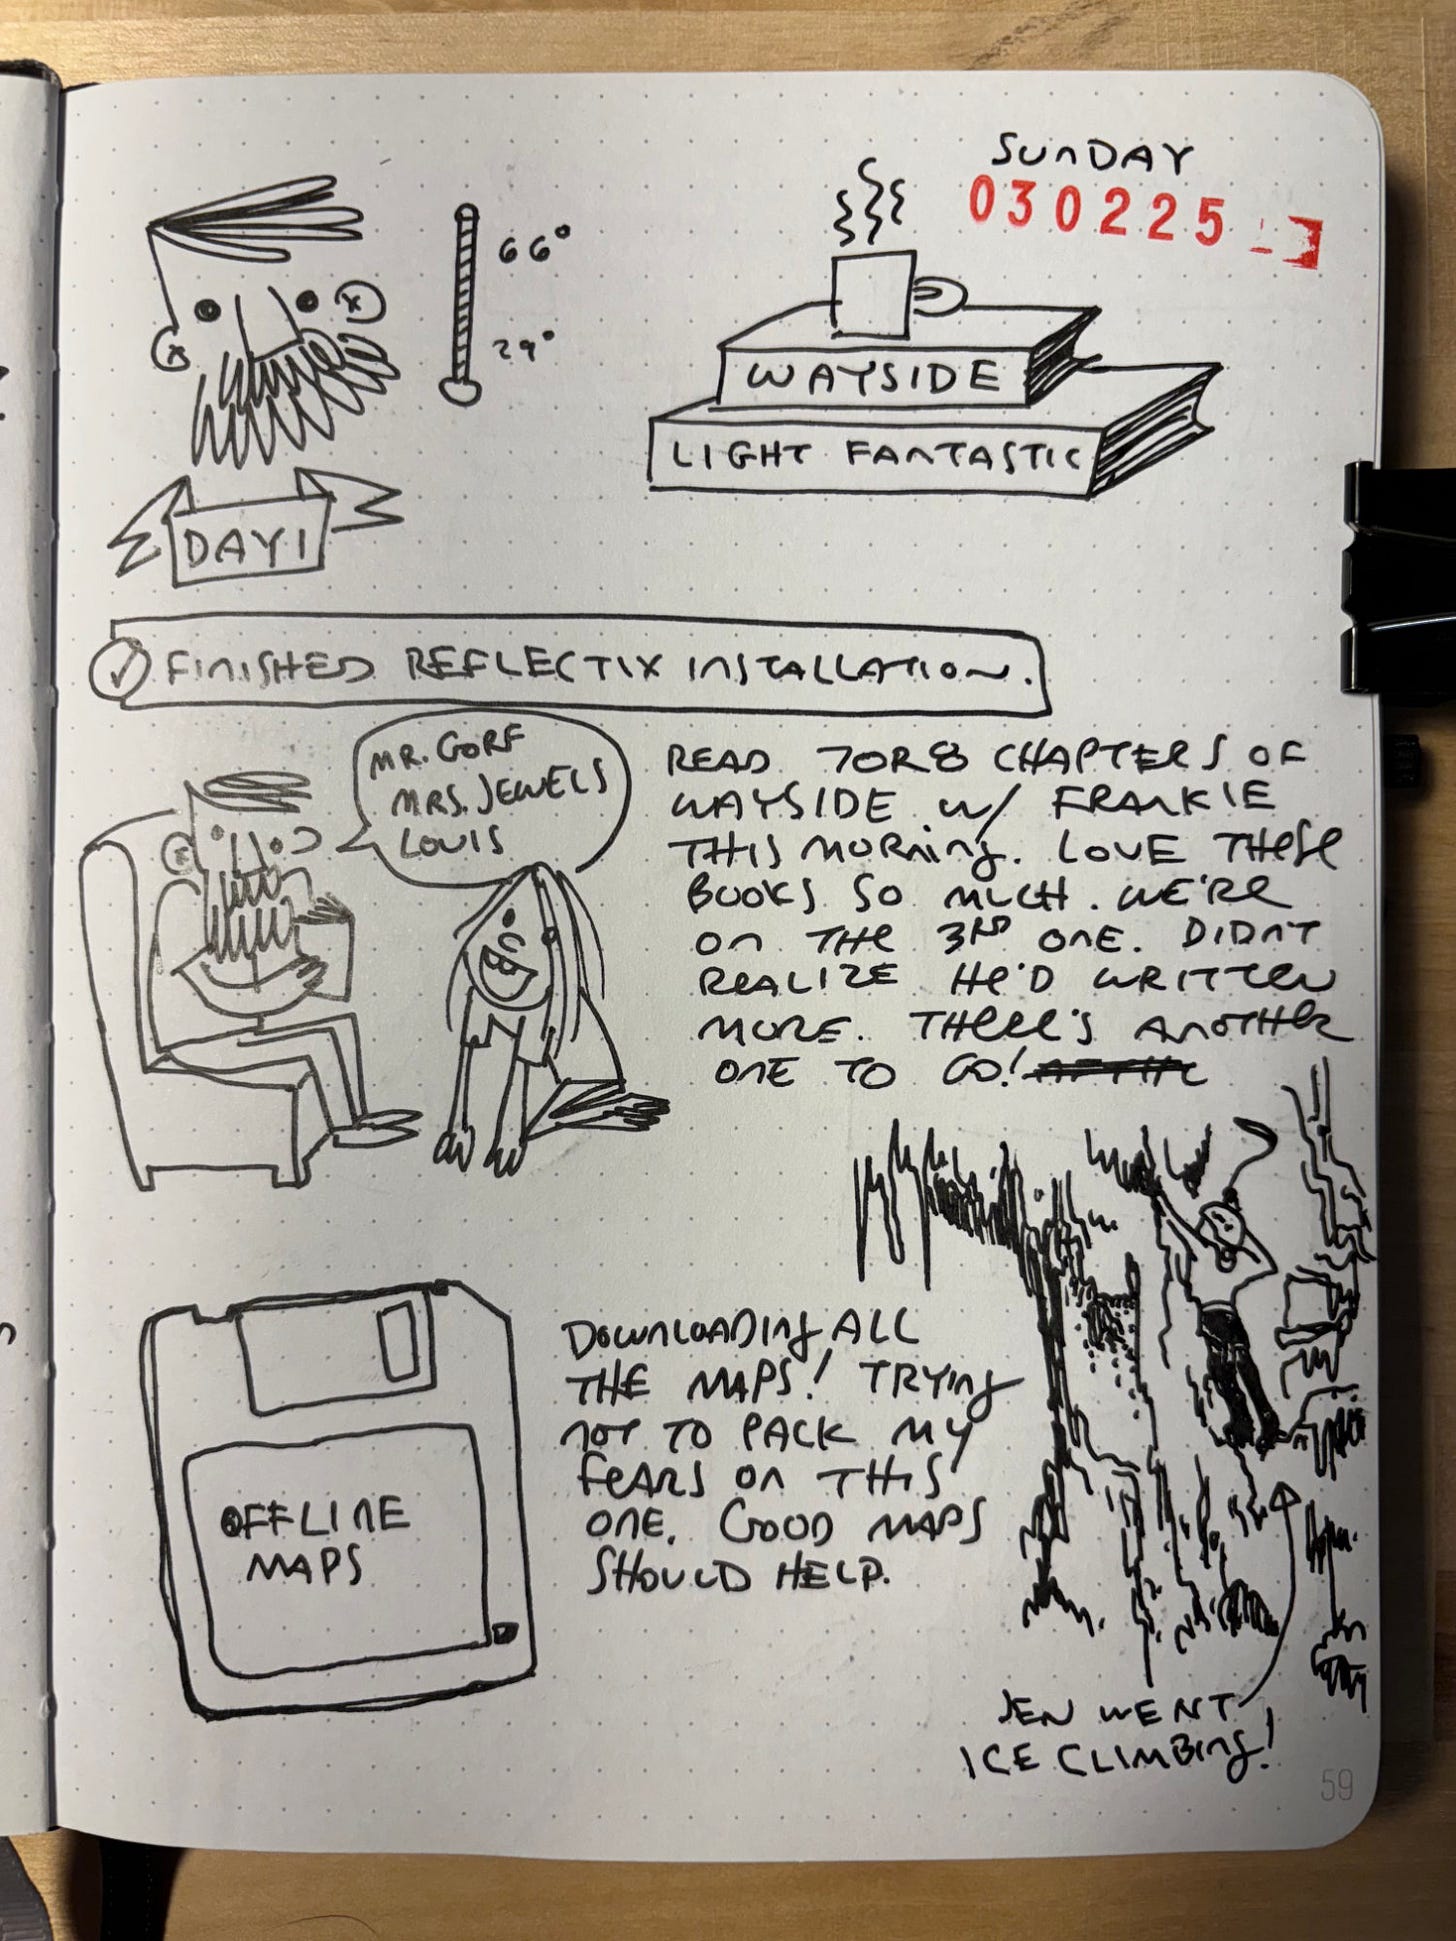 SUNDAY
030225
66°
29°
WAYSIDE
LIGHT FANTASTIC
DAY 1
FINISHED REFLECTIX INSTALLATION.
MR. GORF
MRS. JEWELS
LOUIS
READ 7 OR 8 CHAPTERS OF
WAYSIDE W/ FRANKIE
THIS MORNING. LOVE THESE
BOOKS SO MUCH. WE'RE
ON THE 3RD ONE. DIDN'T
REALIZE HE'D WRITTEN
MORE. THERE'S ANOTHER
ONE TO GO!
OFFLINE
MAPS
DOWNLOADING ALL
THE MAPS! TRYING
NOT TO PACK MY
FEARS ON THIS
ONE. GOOD MAPS
SHOULD HELP.
JEN WENT
ICE CLIMBING!
59